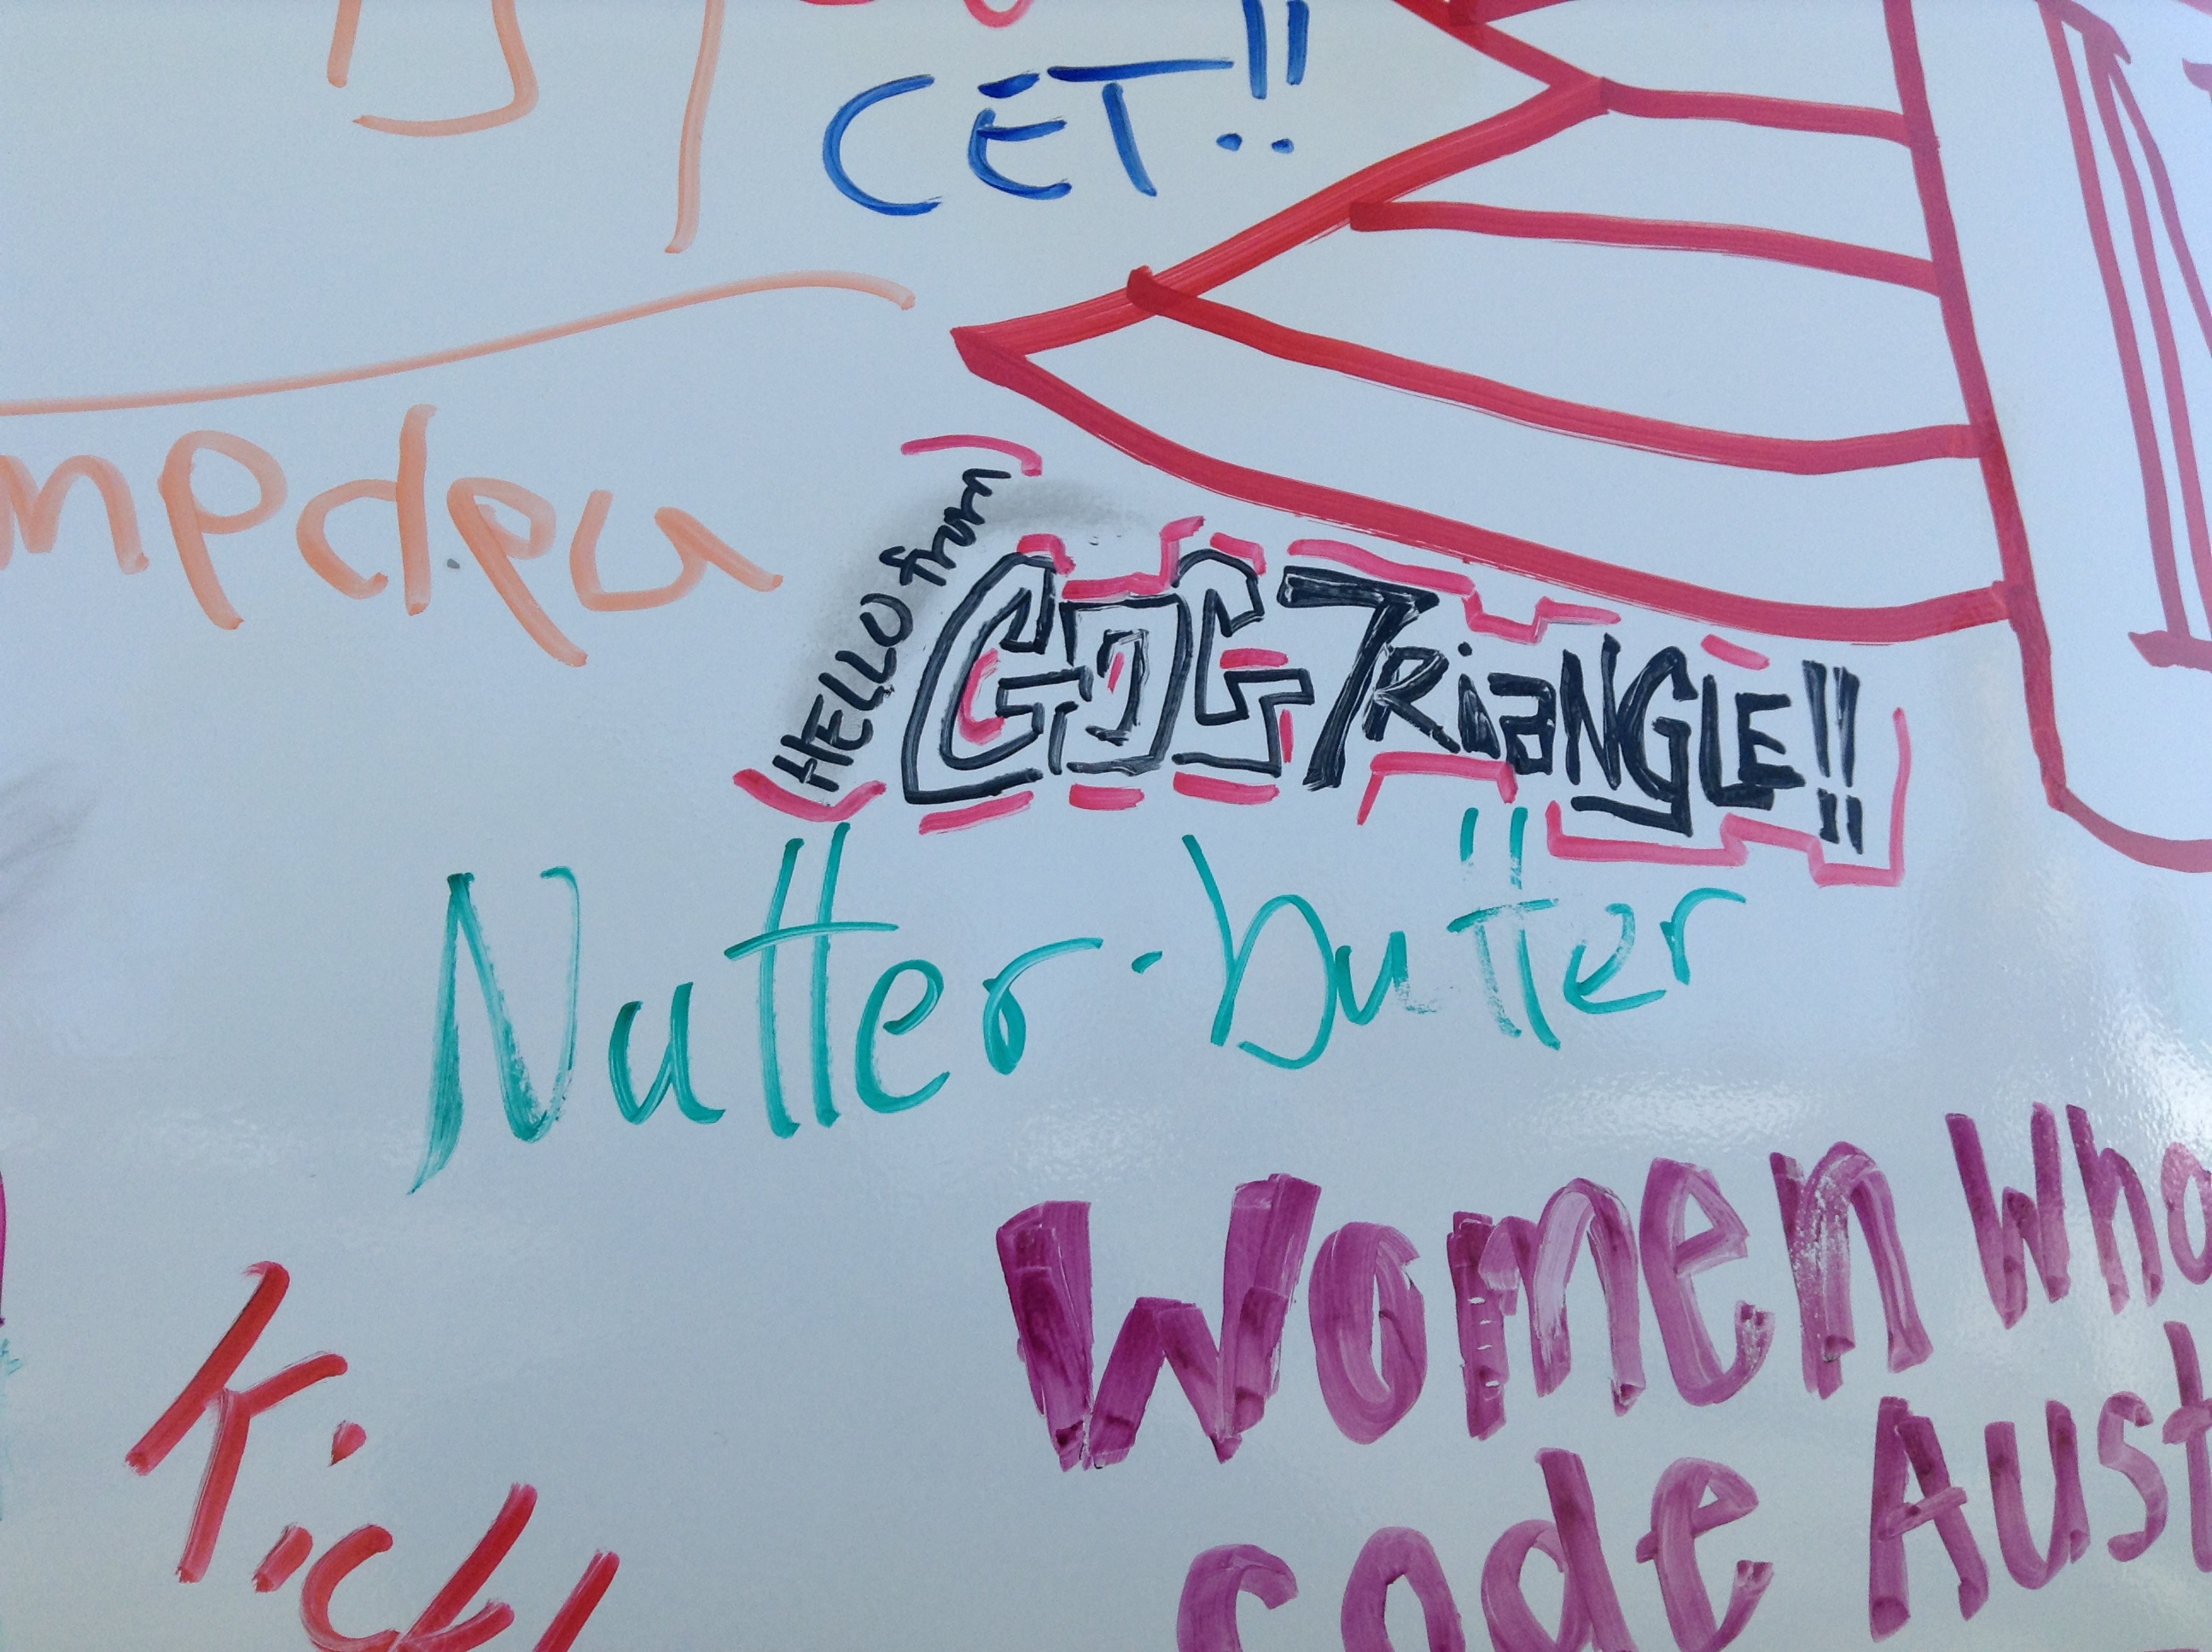 CET!!
HELLO from
GDG TRiaNGLE!!
Nutter-butter
Women Who
code Aust